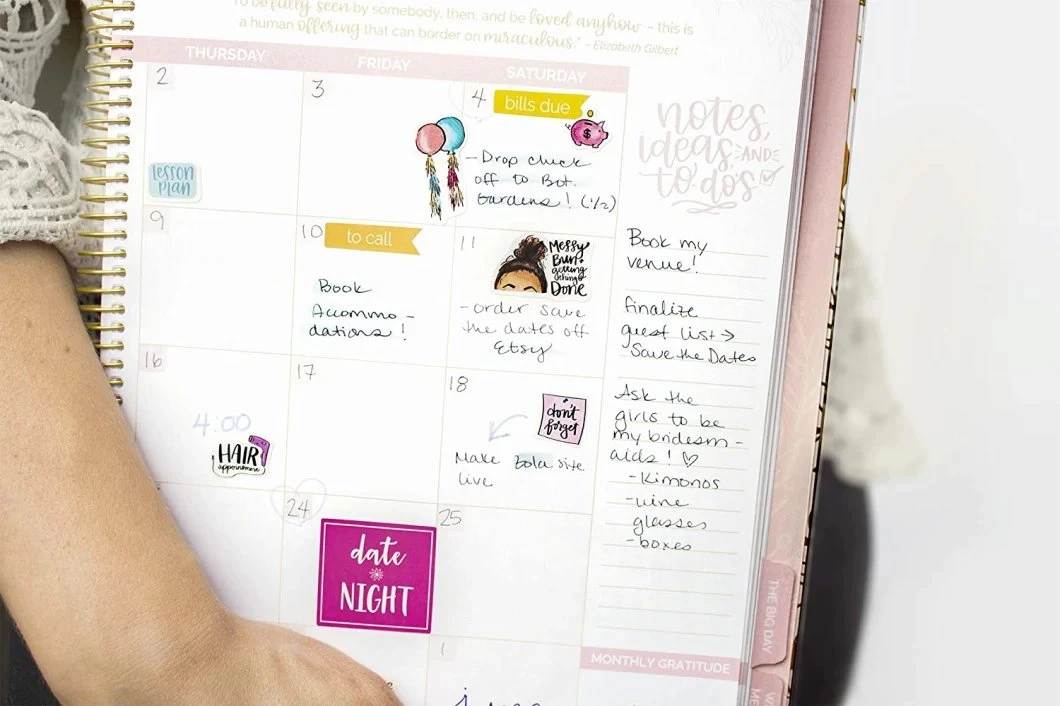 To be fully seen by somebody, then, and be loved anyhow - this is
a human offering that can border on miraculous." - Elizabeth Gilbert
THURSDAY FRIDAY SATURDAY
2 3 4
bills due
$
lesson
plan
- Drop check
off to Bot.
Gardens! (1/2)
notes,
ideas, AND
to-do's
9 10 11
to call
Book
Accommo-
dations!
Messy
Bun &
getting
things
Done
- order save
the dates off
Etsy
Book my
venue!
finalize
guest list →
Save the Dates
16 17 18
4:00
HAIR
appointment
don't
forget
Make Zola site
live
Ask the
girls to be
my bridesm-
aids! ♡
- Kimonos
- wine
glasses
- boxes
24 25
date
NIGHT
1
MONTHLY GRATITUDE
THE BIG DAY